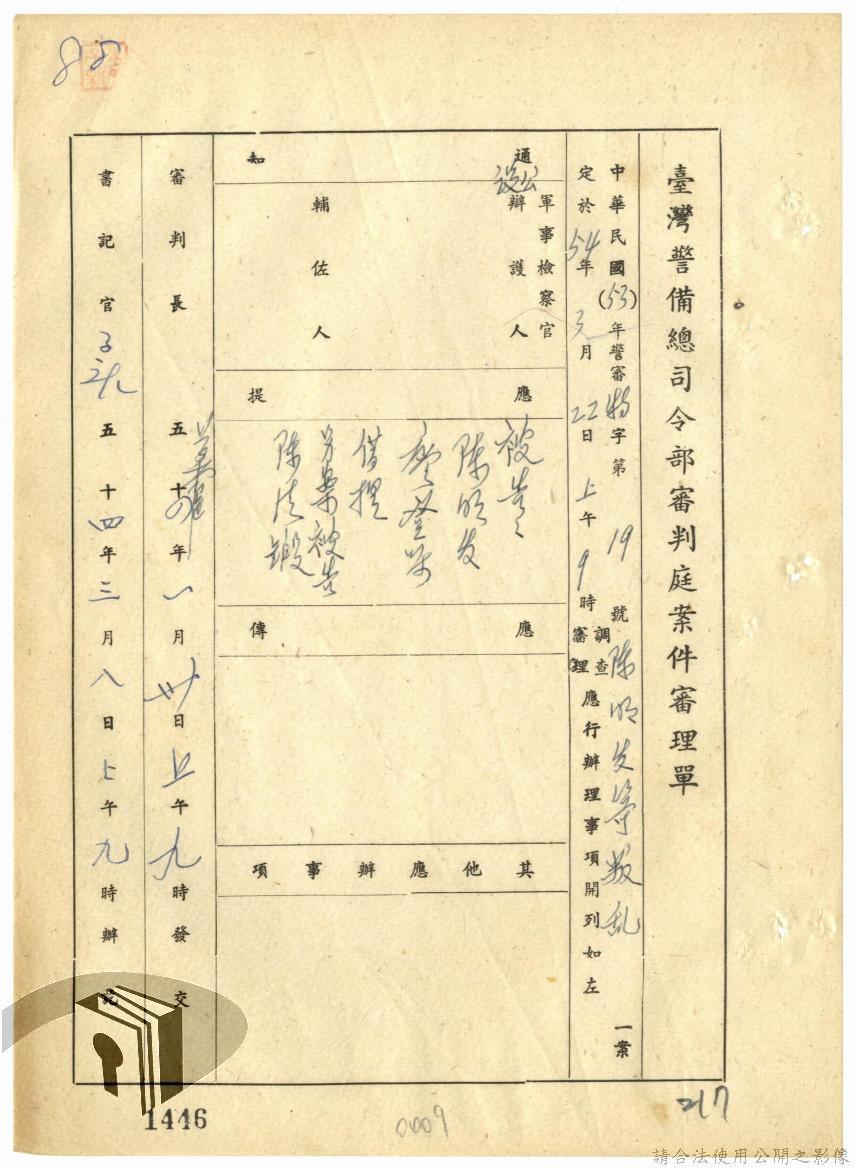 88
臺灣警備總司令部審判庭案件審理單
中華民國(53)年警審特字第19號陈明发等叛乱一案
定於54年3月22日上午9時調查審理應行辦理事項開列如左
通知
軍事檢察官
公設辯護人
輔佐人
應提
被告
陈明发
借提
另案被告
陈
應傳
其他應辦事項
審判長
五十四年一月卅日上午九時發交
書記官
五十四年三月八日上午九時辦
1446
0009
217
請合法使用公開之影像